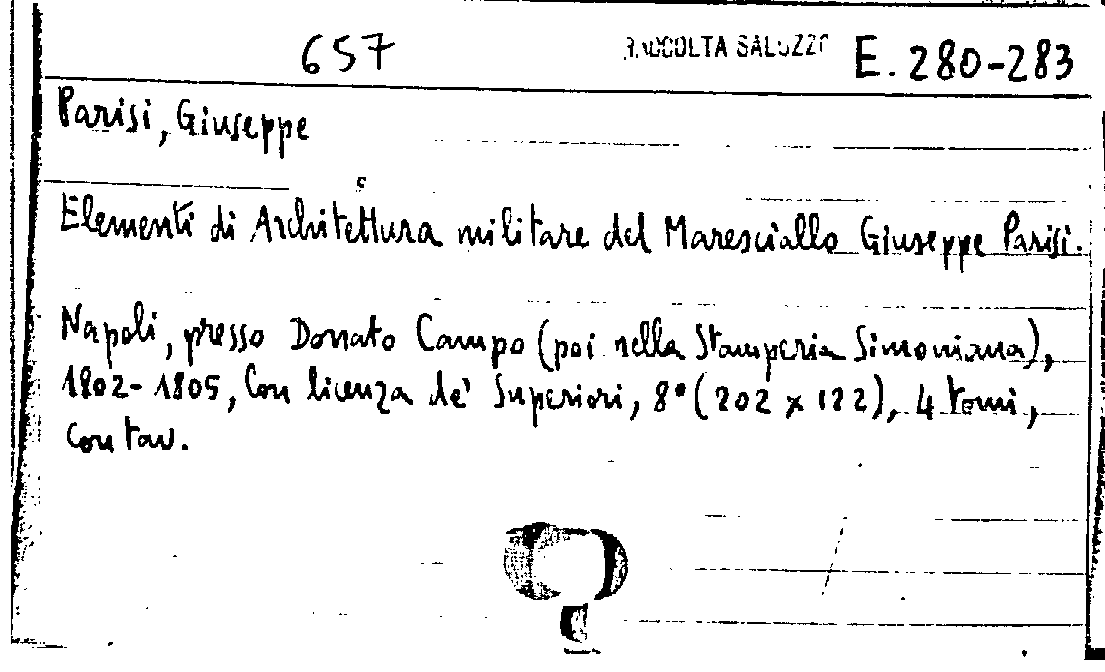 657 RACCOLTA SALUZZO E. 280-283
Parisi, Giuseppe
Elementi di Architettura militare del Maresciallo Giuseppe Parisi.
Napoli, presso Donato Campo (poi nella Stamperia Simoniana),
1802-1805, Con licenza de' Superiori, 8° (202 x 122), 4 tomi,
con tav.